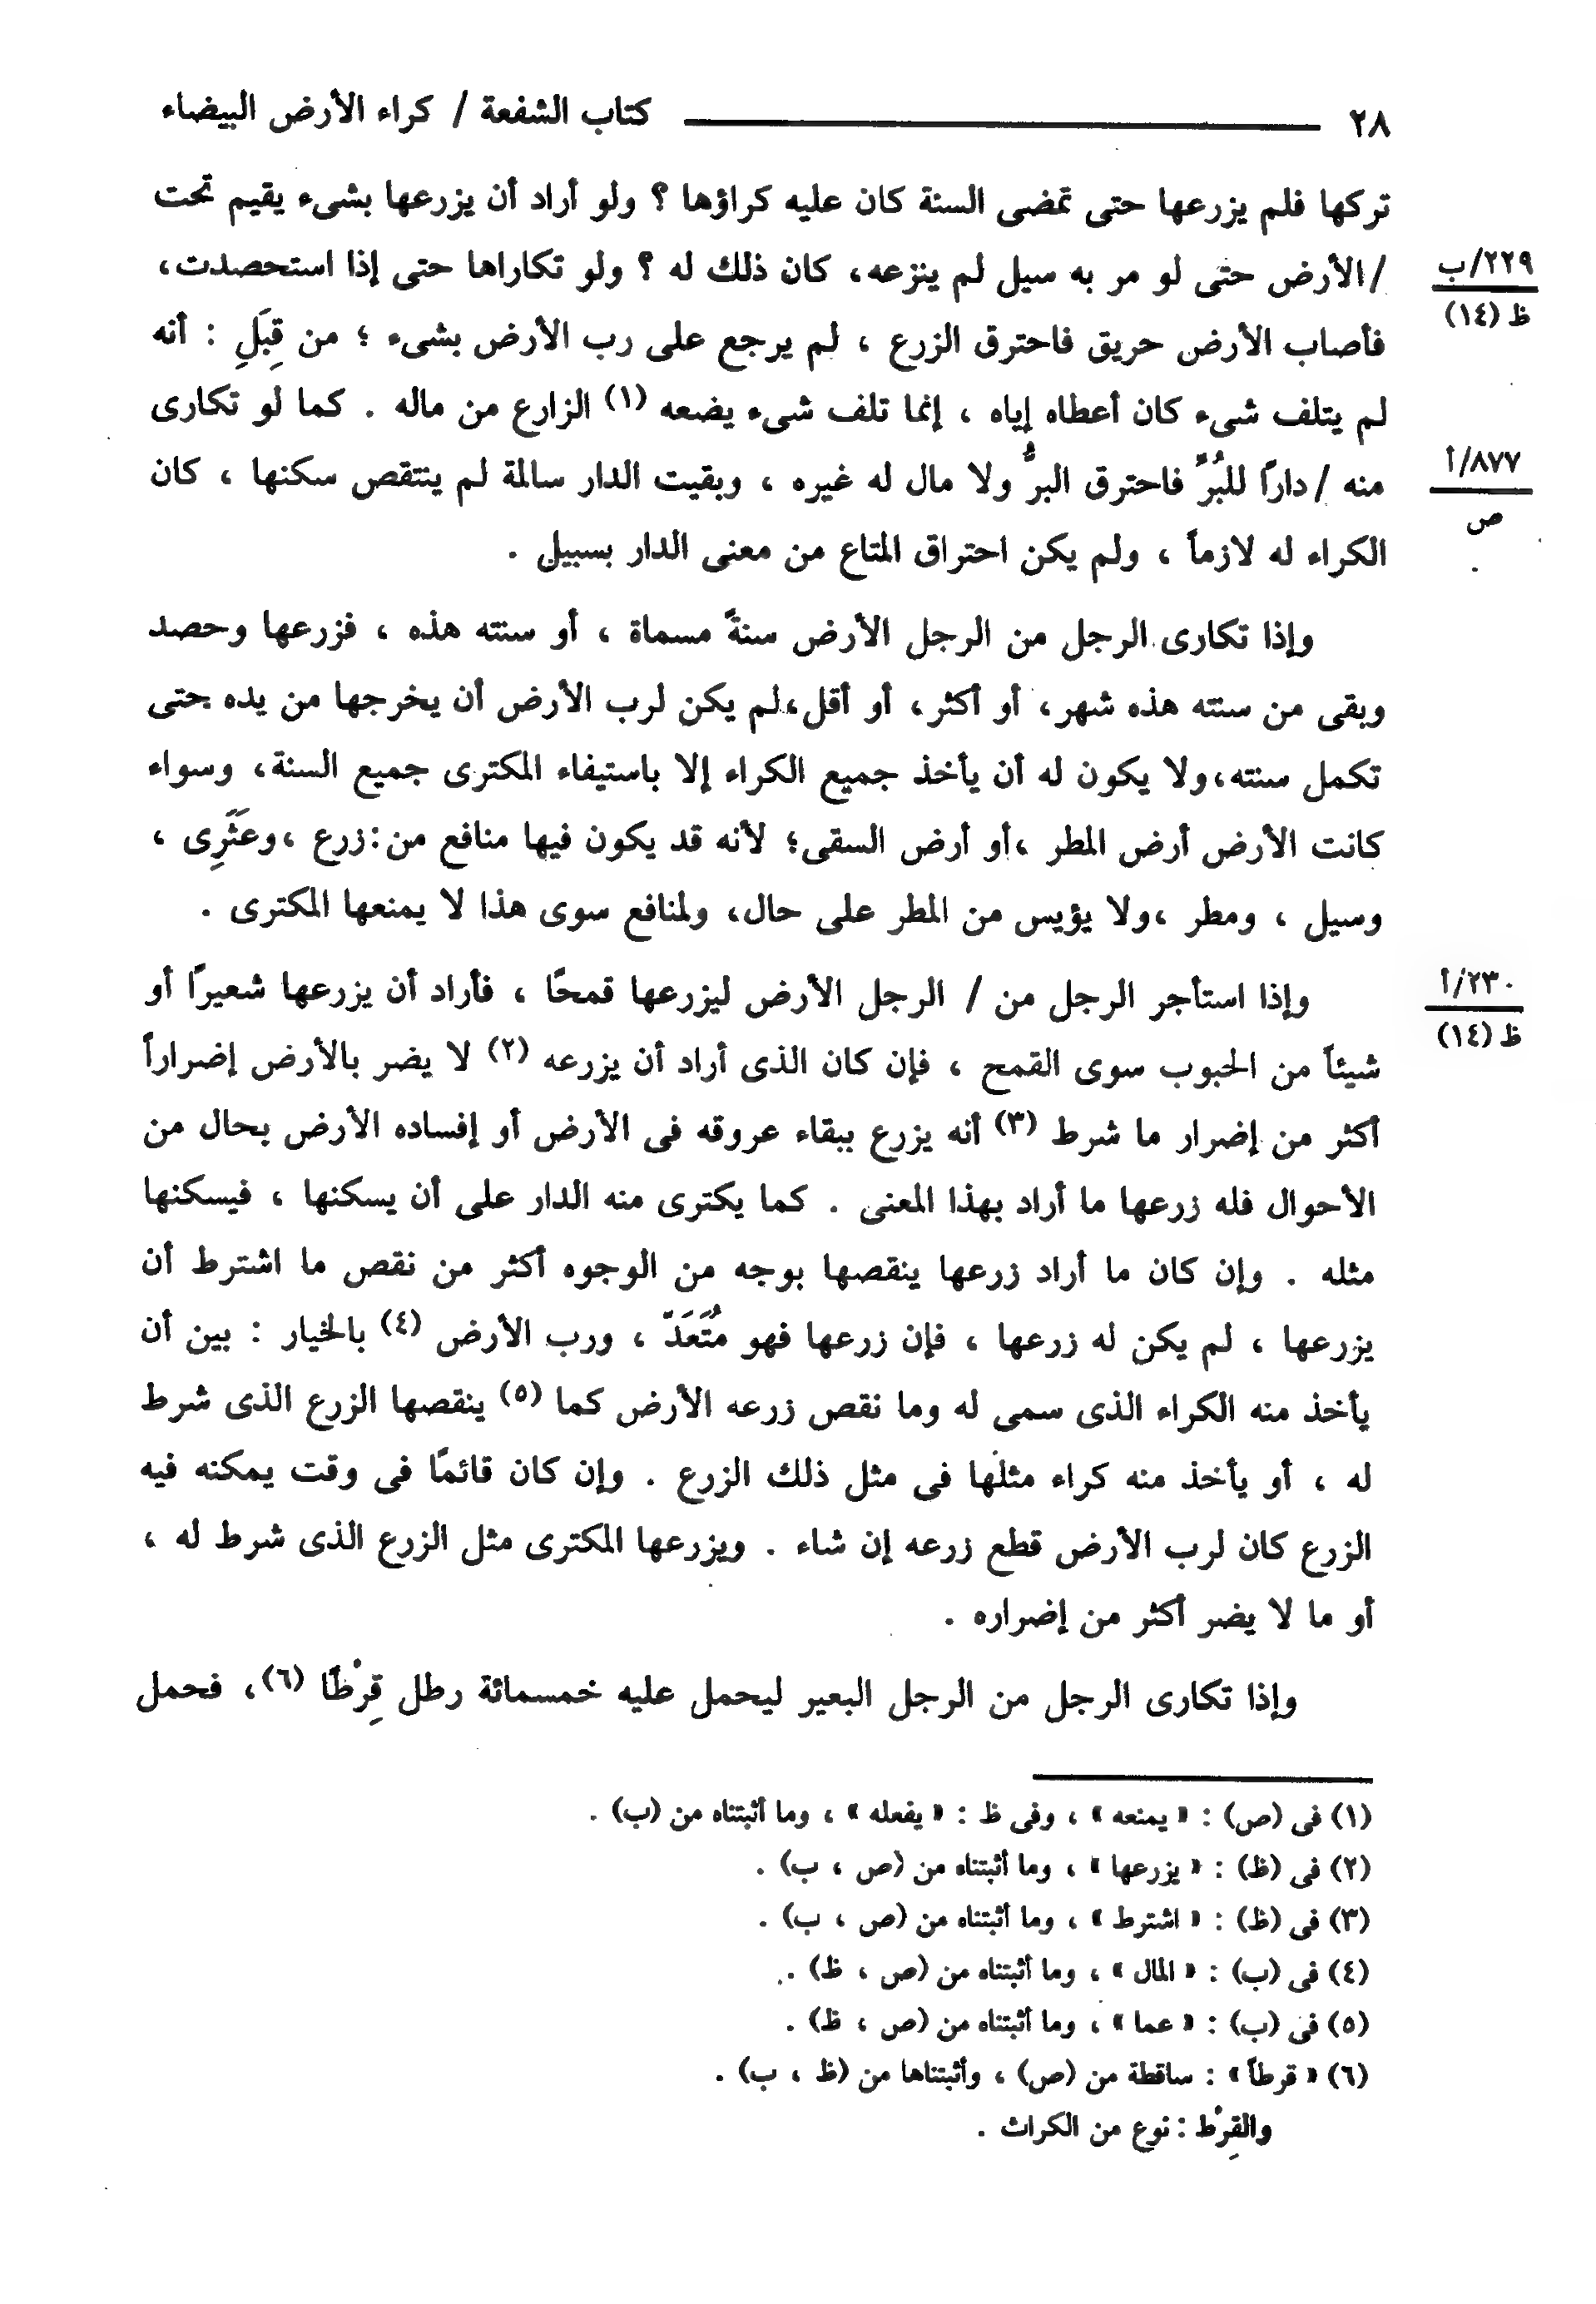 ٢٨ كتاب الشفعة / كراء الأرض البيضاء
تركها فلم يزرعها حتى تمضى السنة كان عليه كراؤها ؟ ولو أراد أن يزرعها بشىء يقيم تحت
/الأرض حتى لو مر به سيل لم ينزعه، كان ذلك له ؟ ولو تكاراها حتى إذا استحصدت،
٢٢٩/ب
ظ (١٤)
فأصاب الأرض حريق فاحترق الزرع ، لم يرجع على رب الأرض بشىء ؛ من قِبَلِ : أنه
لم يتلف شىء كان أعطاه إياه ، إنما تلف شىء يضعه (١) الزارع من ماله . كما لو تكارى
منه /داراً للبُرِّ فاحترق البرُّ ولا مال له غيره ، وبقيت الدار سالمة لم ينتقص سكنها ، كان
٨٧٧/أ
ص
الكراء له لازماً ، ولم يكن احتراق المتاع من معنى الدار بسبيل .
وإذا تكارى الرجل من الرجل الأرض سنةً مسماة ، أو سنته هذه ، فزرعها وحصد
وبقى من سنته هذه شهر، أو أكثر، أو أقل،لم يكن لرب الأرض أن يخرجها من يده حتى
تكمل سنته،ولا يكون له أن يأخذ جميع الكراء إلا باستيفاء المكترى جميع السنة، وسواء
كانت الأرض أرض المطر ،أو أرض السقى؛ لأنه قد يكون فيها منافع من:زرع ،وعَثَرِى ،
وسيل ، ومطر ،ولا يؤيس من المطر على حال، ولمنافع سوى هذا لا يمنعها المكترى .
وإذا استأجر الرجل من / الرجل الأرض ليزرعها قمحًا ، فأراد أن يزرعها شعيرًا أو
٢٣٠/أ
ظ (١٤)
شيئاً من الحبوب سوى القمح ، فإن كان الذى أراد أن يزرعه (٢) لا يضر بالأرض إضراراً
أكثر من إضرار ما شرط (٣) أنه يزرع ببقاء عروقه فى الأرض أو إفساده الأرض بحال من
الأحوال فله زرعها ما أراد بهذا المعنى . كما يكترى منه الدار على أن يسكنها ، فيسكنها
مثله . وإن كان ما أراد زرعها ينقصها بوجه من الوجوه أكثر من نقص ما اشترط أن
يزرعها ، لم يكن له زرعها ، فإن زرعها فهو مُتَعَدّ ، ورب الأرض (٤) بالخيار : بين أن
يأخذ منه الكراء الذى سمى له وما نقص زرعه الأرض كما (٥) ينقصها الزرع الذى شرط
له ، أو يأخذ منه كراء مثلها فى مثل ذلك الزرع . وإن كان قائمًا فى وقت يمكنه فيه
الزرع كان لرب الأرض قطع زرعه إن شاء . ويزرعها المكترى مثل الزرع الذى شرط له ،
أو ما لا يضر أكثر من إضراره .
وإذا تكارى الرجل من الرجل البعير ليحمل عليه خمسمائة رطل قِرْطًا (٦)، فحمل
(١) فى (ص) : « يمنعه » ، وفى ظ : « يفعله » ، وما أثبتناه من (ب) .
(٢) فى (ظ) : « يزرعها » ، وما أثبتناه من (ص ، ب) .
(٣) فى (ظ) : « اشترط » ، وما أثبتناه من (ص ، ب) .
(٤) فى (ب) : « المال » ، وما أثبتناه من (ص ، ظ) .
(٥) فى (ب) : « عما » ، وما أثبتناه من (ص ، ظ) .
(٦) « قرطاً » : ساقطة من (ص) ، وأثبتناها من (ظ ، ب) .
والقِرْط : نوع من الكراث .